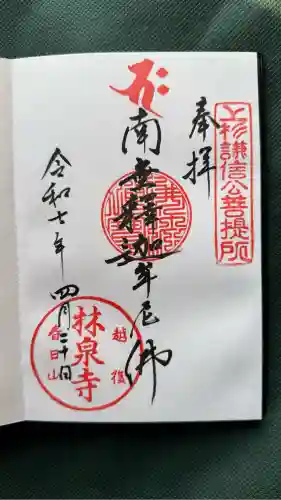 上杉謙信公菩提所
奉拝
南無釋迦牟尼佛
令和七年四月二十日
越後
林泉寺
春日山